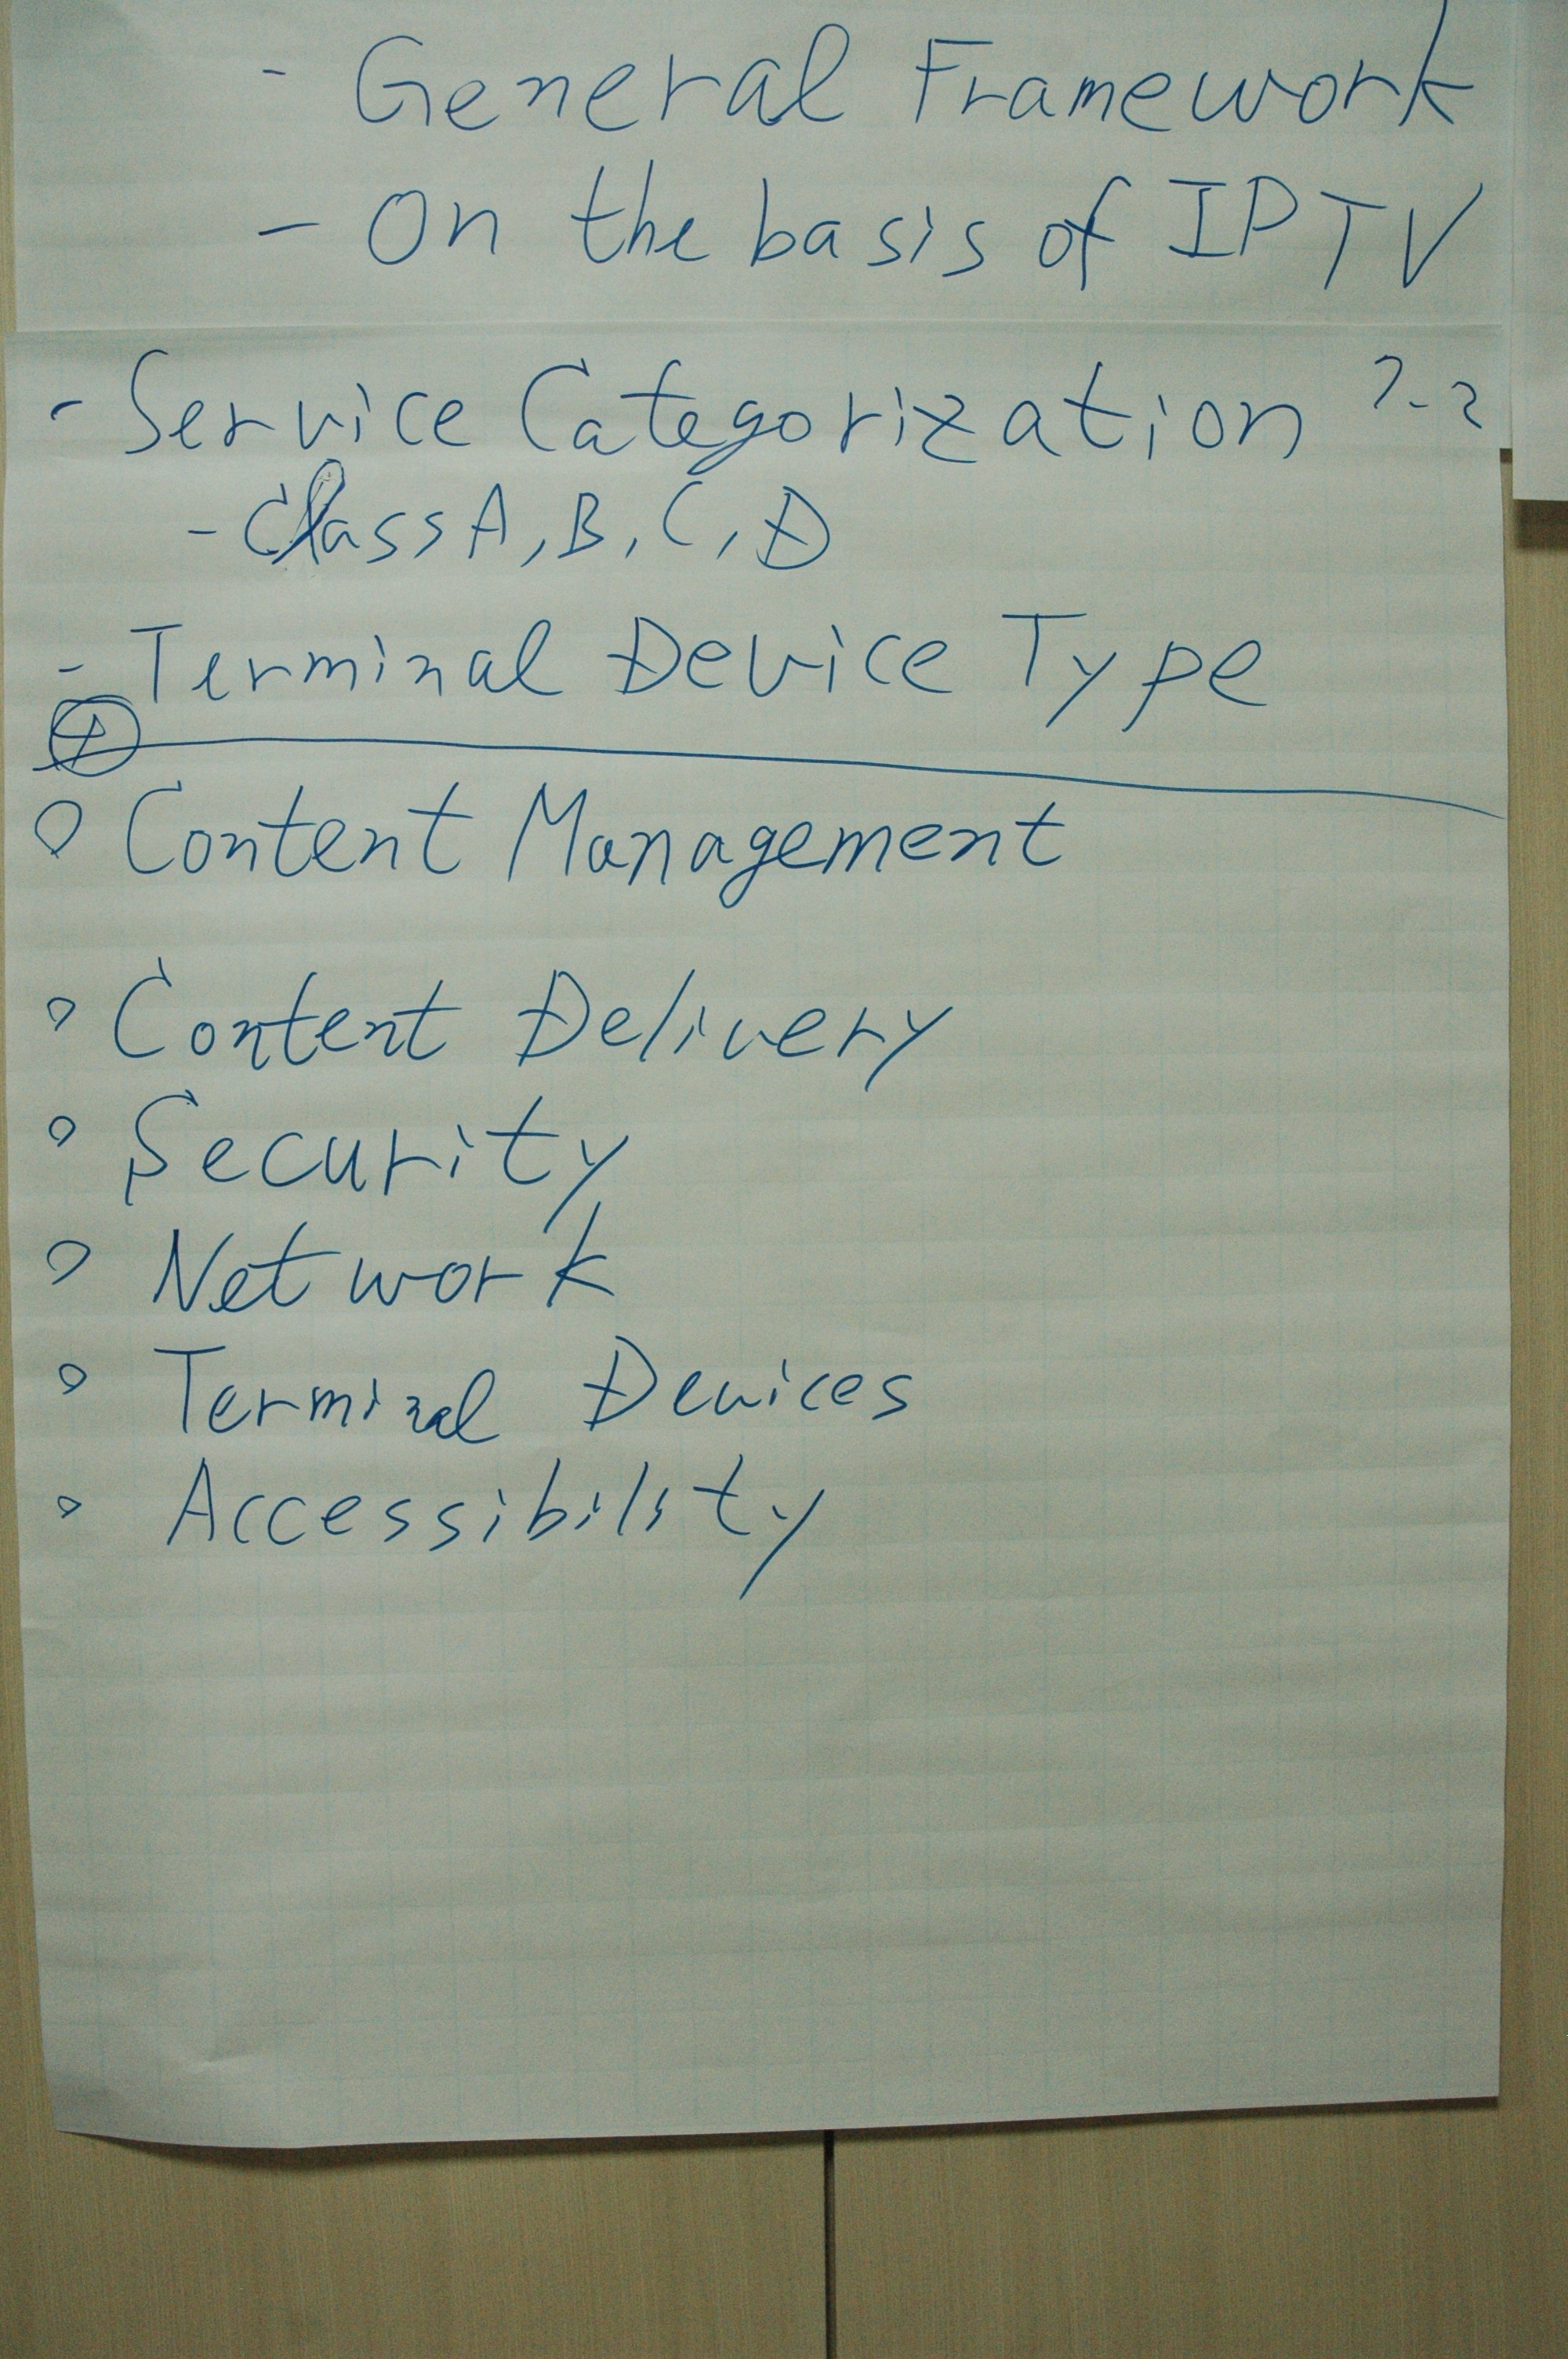 - General Framework
- On the basis of IPTV
- Service Categorization
- Class A, B, C, D
- Terminal Device Type
o Content Management
o Content Delivery
o Security
o Network
o Terminal Devices
o Accessibility